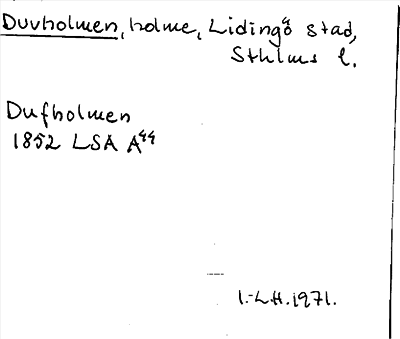 Duvholmen, holme, Lidingö stad,
Sthlms l.
Dufholmen
1852 LSA A44
1.-LH.1971.